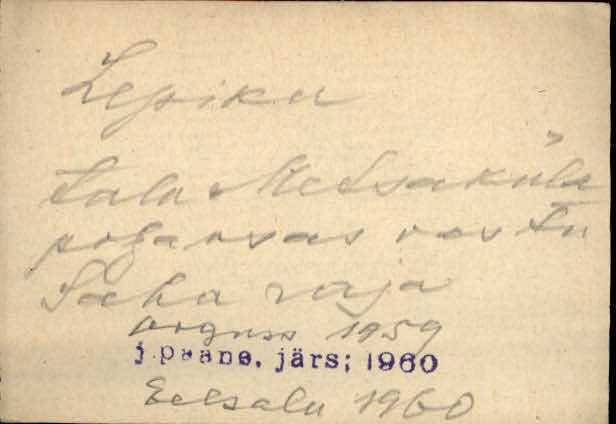 Lepiku
talu Metsaküla
põhaosas vastu
Saha raja
august 1959
j.paane, järs; 1960
Eelsalu 1960